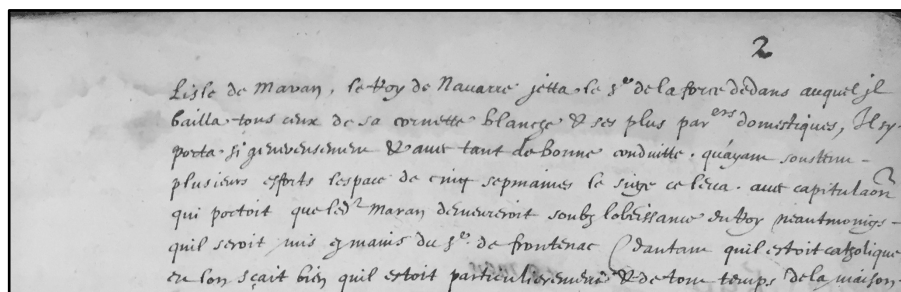 2
Lisle de Maran, le Roy de Navarre jetta le Sr de la force dedans auquel jl
bailla tous ceux de sa cornette blanche & ses plus parers domestiques, Il sy
porta si genereusement & avec tant de bonne conduitte, quayant soustenu
plusieurs efforts lespace de cinq sepmaines le siege ce leva, avec capitulaon
qui portoit que led. Maran demeureroit soubz lobeissance du Roy neantmoings
quil seroit mis es mains du Sr de frontenac (dautant quil estoit catholique
en lon sçait bien quil estoit particulierement & de tout temps de la maison